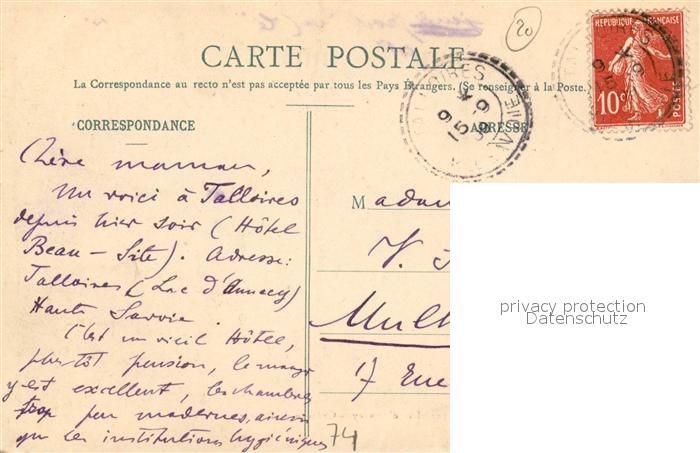 20
CARTE POSTALE
La Correspondance au recto n'est pas acceptée par tous les Pays Étrangers. (Se renseigner à la Poste.)
REPUBLIQUE FRANÇAISE
10c POSTES
TALLOIRES
15
9
SAVOIE
CORRESPONDANCE
ADRESSE
Chère maman,
Me voici à Talloires
depuis hier soir (Hôtel
Beau-Site). Adresse:
Talloires (Lac d'Annecy)
Haute Savoie.
C'est un vieil Hôtel,
plutôt pension, le manger
y est excellent, les chambres
trop peu modernes, ainsi
que les institutions hygiéniques
74
Madam
V.
Mulh
17 Rue
privacy protection
Datenschutz